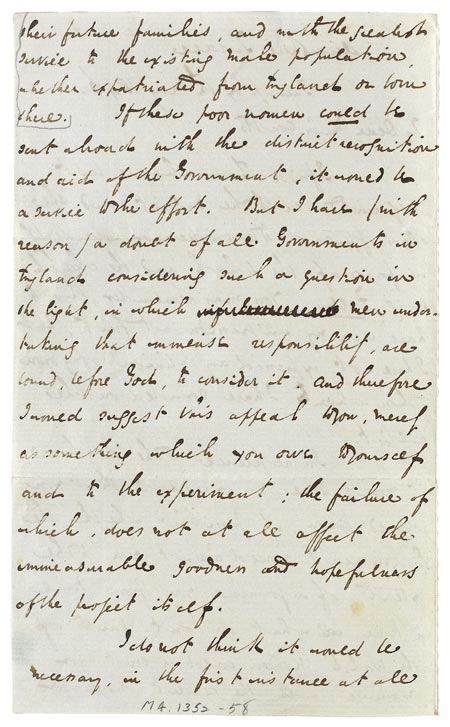 their future families, and with the greatest
service to the existing male population,
whether expatriated from England or born
there. If these poor women could be
sent abroad with the distinct recognition
and aid of the Government, it would be
a service to the effort. But I have (with
reason) a doubt of all Governments in
England considering such a question in
the light, in which men under-
taking that immense responsibility, are
bound, before God, to consider it. And therefore
I would suggest this appeal to you, merely
as something which you owe to yourself
and to the experiment; the failure of
which, does not at all affect the
immeasurable goodness and hopefulness
of the project itself.
I do not think it would be
necessary, in the first instance at all
MA. 1352 - 58